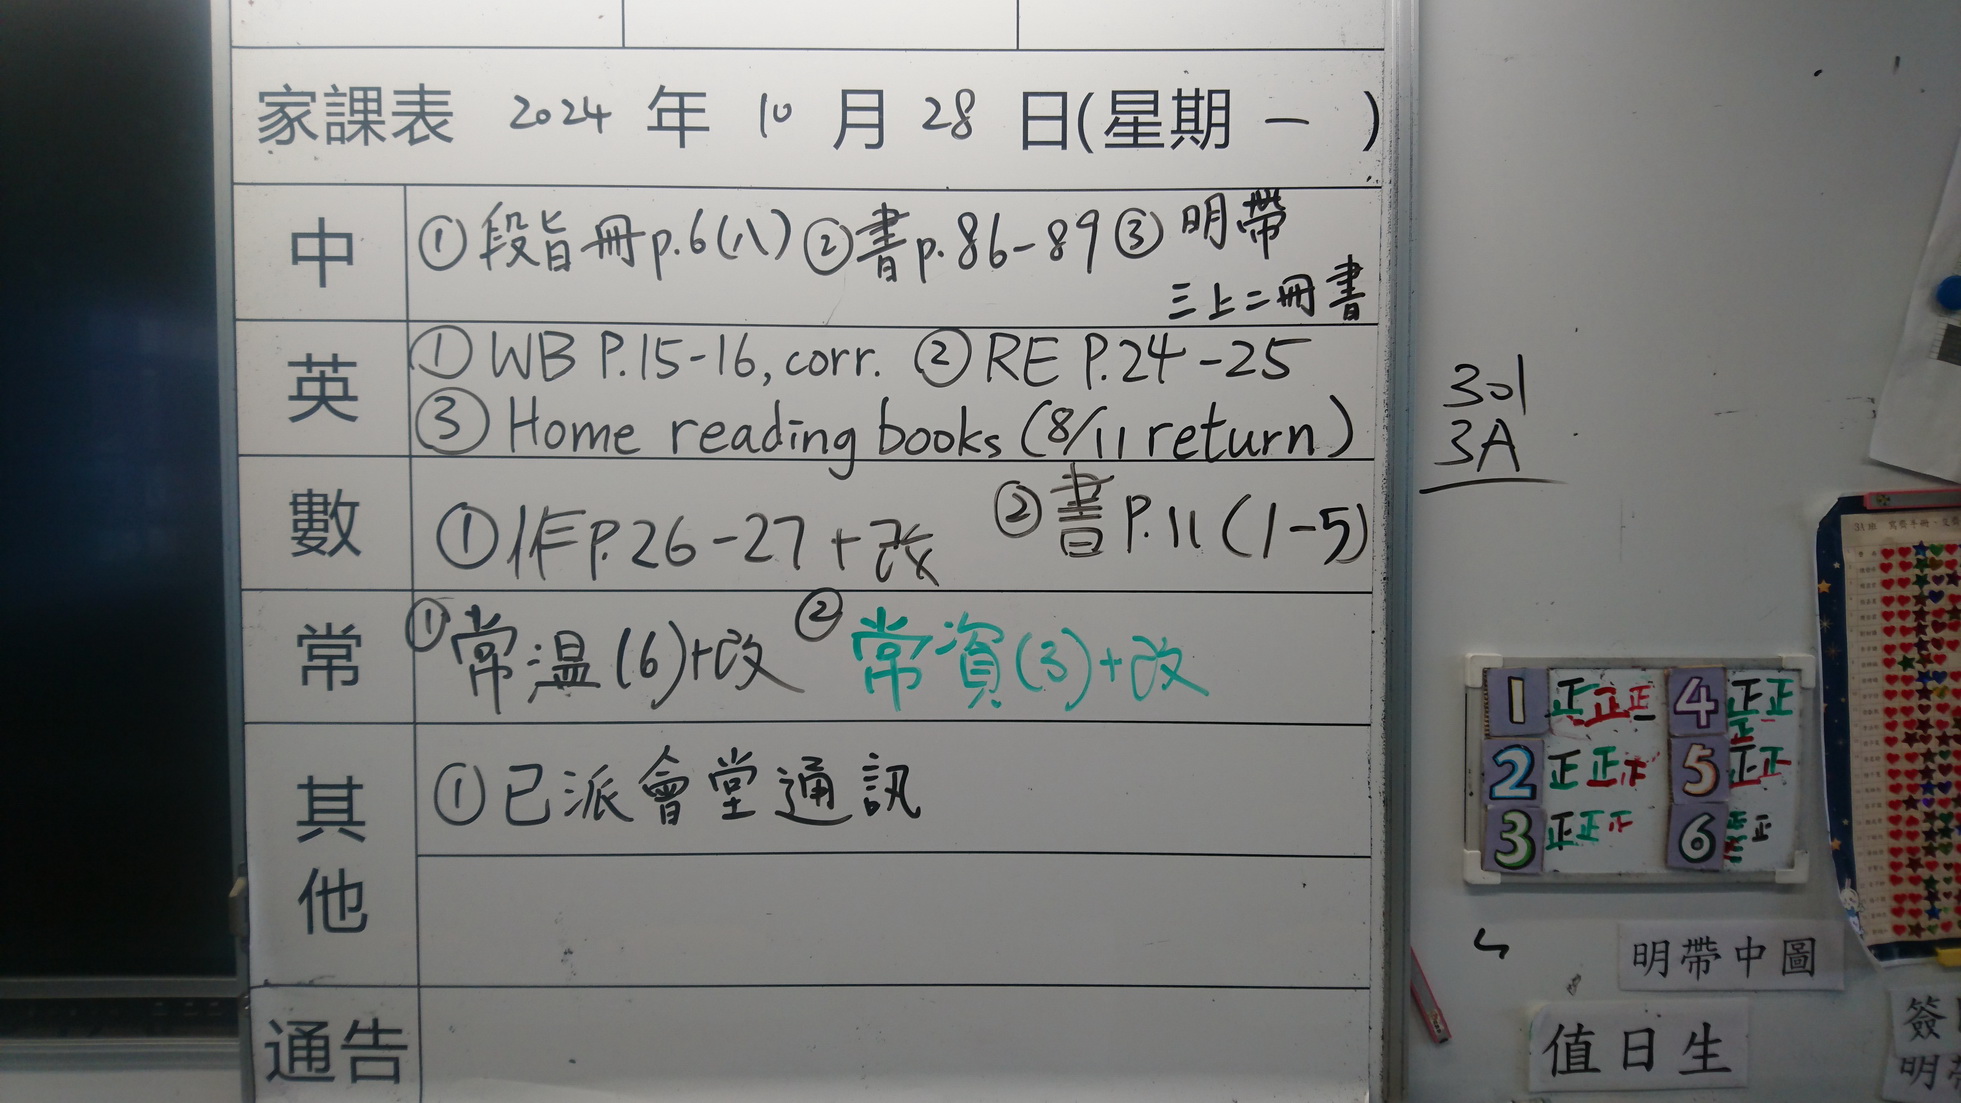 家課表 2024 年 10 月 28 日(星期 一 )
中
① 段旨冊p.6(八) ② 書p.86-89 ③ 明帶
三上二冊書
英
① WB P.15-16, corr. ② RE P.24-25
③ Home reading books (8/11 return)
數
① 作P.26-27+改 ② 書P.11(1-5)
常
① 常温(6)+改 ② 常資(3)+改
其他
① 已派會堂通訊
通告
301
3A
1 正正正 4 正正正
2 正正 5 正正
3 正正 6 正
明帶中圖
值日生
簽
明